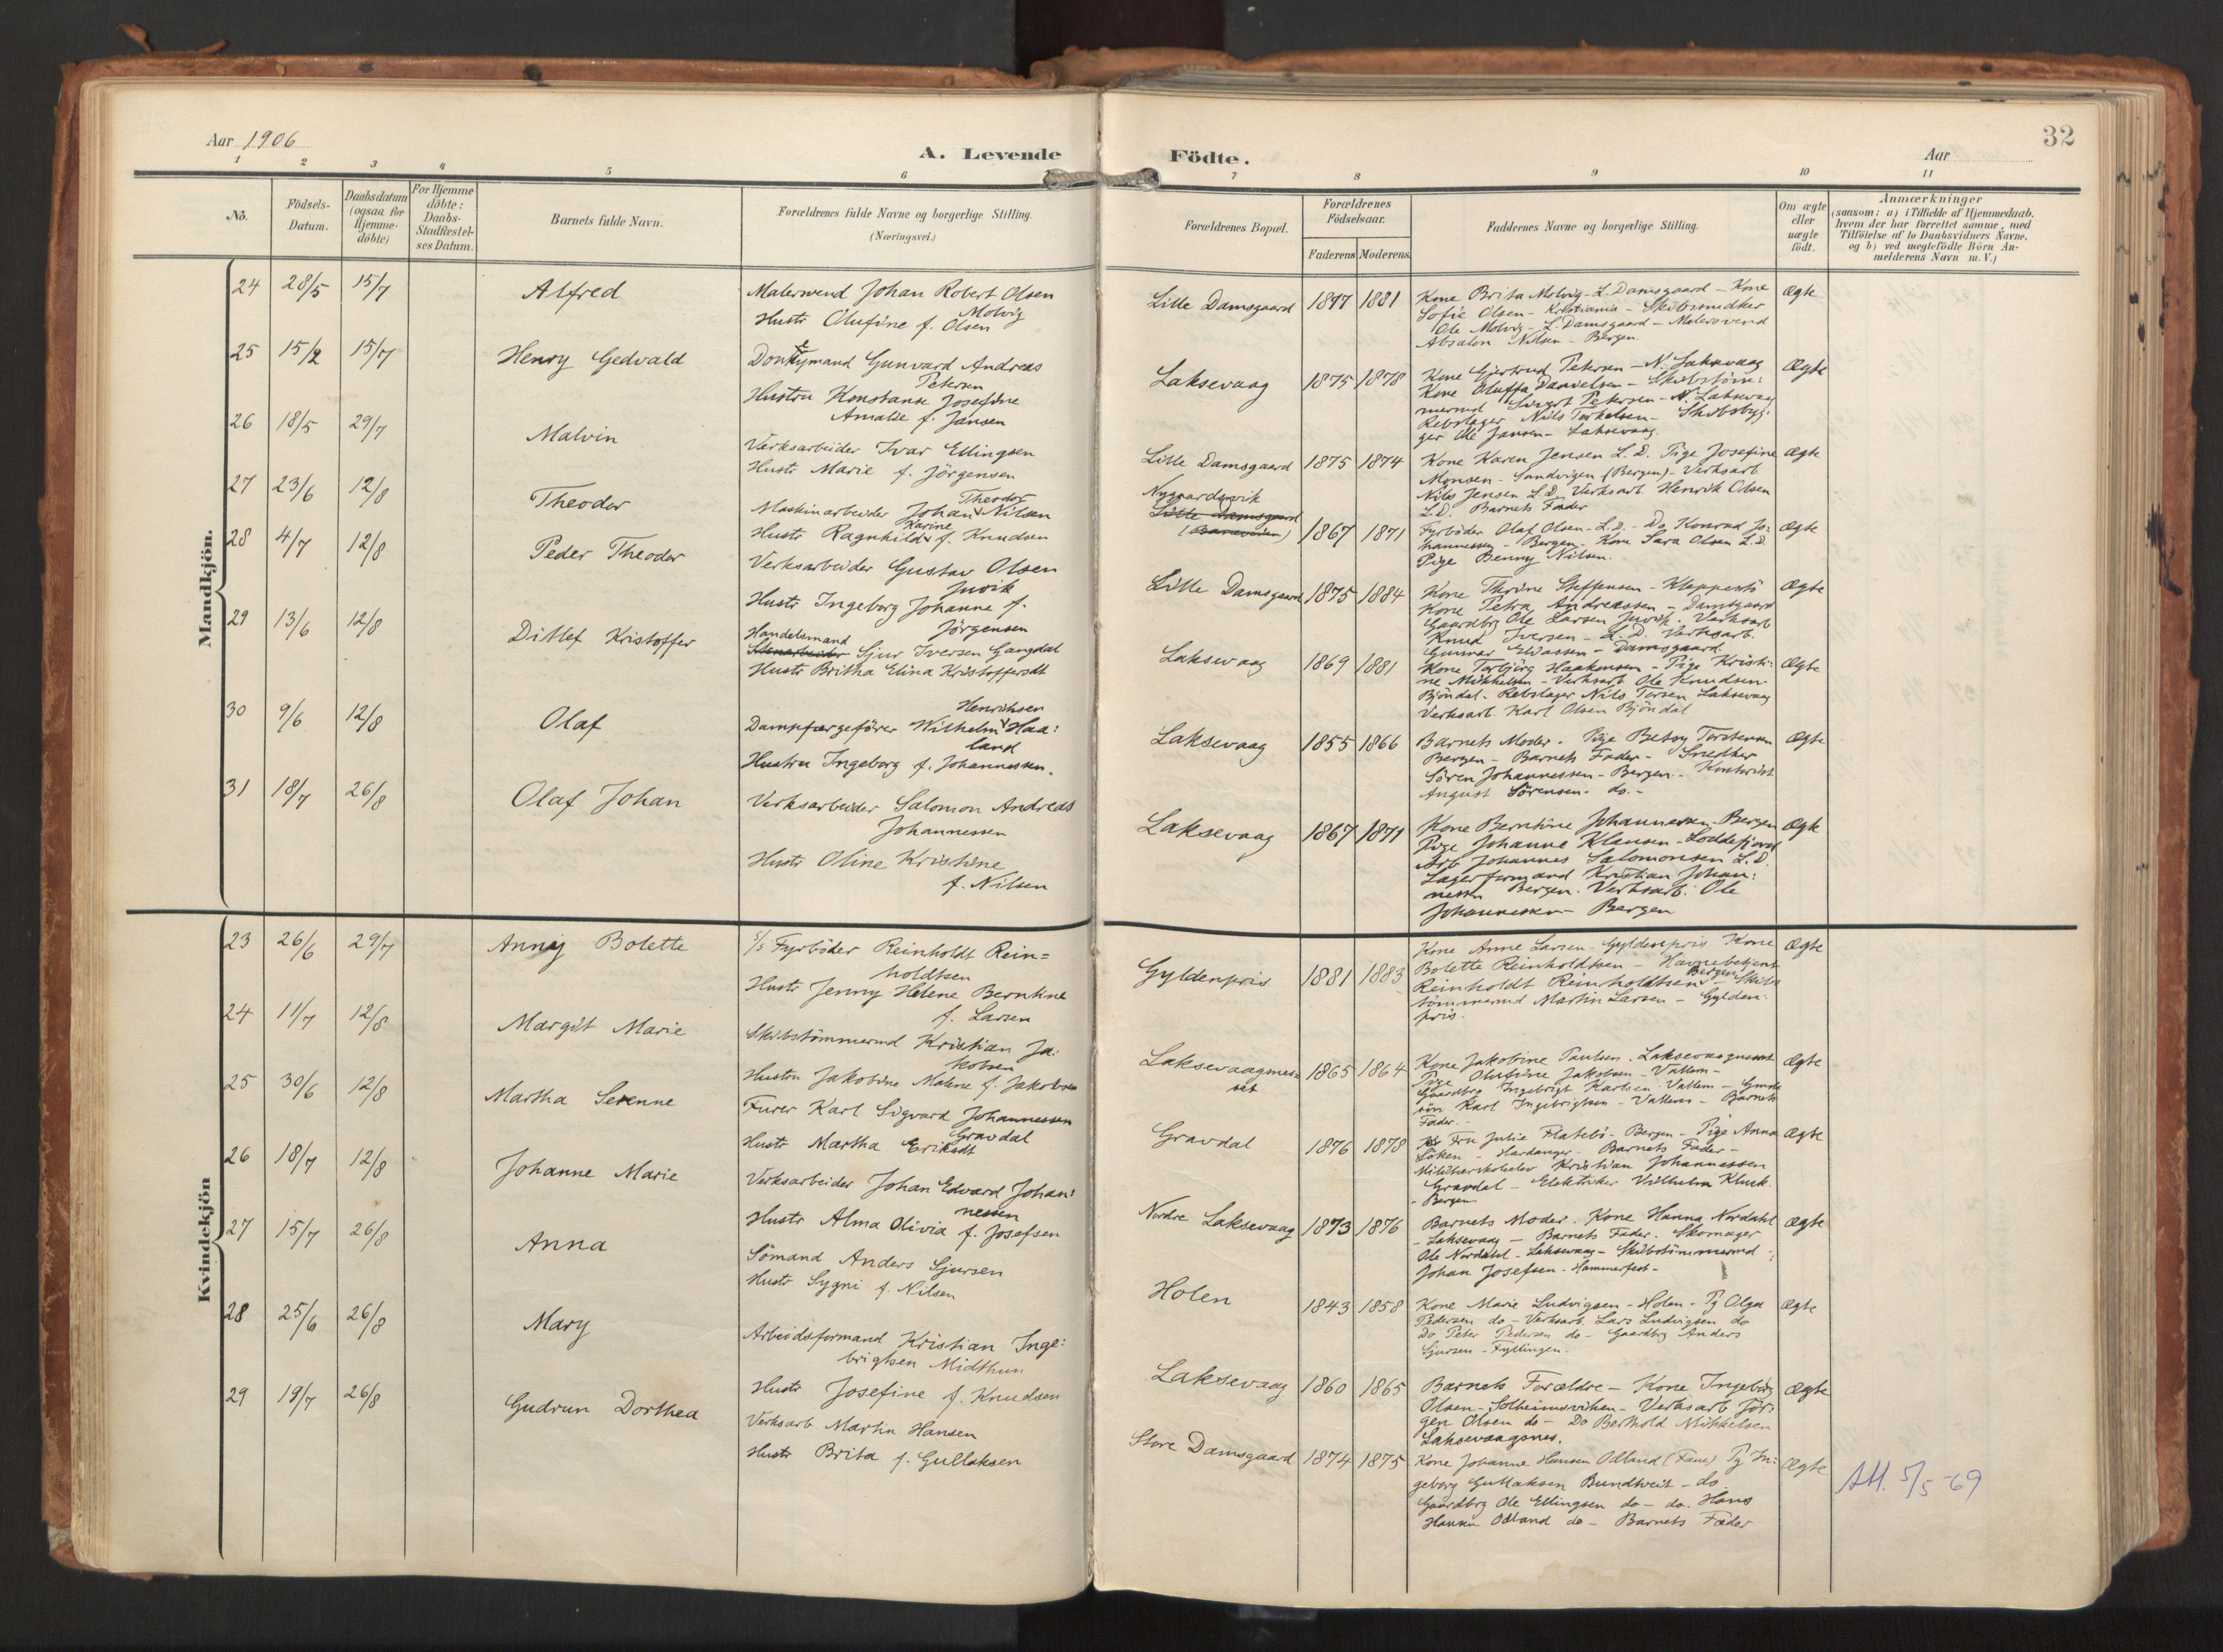 32
Aar 1906
A. Levende
Födte.
Aar
1 2 3 4 5 6
7 8 9 10 11
No.
Födsels-
Datum.
Daabsdatum
(ogsaa for
Hjemme-
döbte)
For Hjemme
döbte:
Daabs-
Stadfæstel-
ses Datum.
Barnets fulde Navn.
Forældrenes fulde Navne og borgerlige Stilling.
(Næringsvei.)
Forældrenes Bopæl.
Forældrenes
Födselsaar.
Faderens Moderens
Faddernes Navne og borgerlige Stilling.
Om ægte
eller
uægte
födt.
Anmærkninger
(saasom: a) i Tilfælde af Hjemmedaab,
hvem der har forrettet samme, med
Tilföielse af to Daabsvidners Navne,
og b) ved uægtefödte Börn An-
melderens Navn m.V.)
Mandkjön.
24 28/5 15/7 Alfred
Malersvend Johan Robert Olsen
Molvig
Hustr Olufine f. Olsen
Lille Damsgaard 1877 1881
Kone Brita Molvig - L. Damsgaard - Kone
Sofie Olsen - Kristiania - Skibssmedker
Ole Molvig - L. Damsgaard - Malersvend
Absalon Nilsen - Bergen.
Ægte
25 15/2 15/7 Henry Gedvald
Donkeymand Gunvard Andreas
Petersen
Hustru Konstanse Josefine
Amalie f. Jansen
Laksevaag 1875 1878
Kone Gjertrud Petersen - N. Laksevaag
Kone Oluffa Danielsen - Skibstöm:
mermd Sivert Petersen - N. Laksevaag
Rebslager Nils Torkelsen - Skibsbyg:
ger Ole Jansen - Laksevaag.
Ægte
26 18/5 29/7 Malvin
Verksarbeider Ivar Ellingsen
Hustr Marie f. Jörgensen
Lille Damsgaard 1875 1874
Kone Karen Jensen L.D. Pige Josefine
Monsen - Sandvigen (Bergen) - Verksarb.
Nils Jensen L.D. Verksarb Henrik Olsen
L.D. Barnets Fader
Ægte
27 23/6 12/8 Theodor
Theodor
Maskinarbeider Johan Nilsen
Karine
Hustr Ragnhild f. Knudsen
Nygaardsvik
Lille Damsgaard
1867 1871
Fyrböder Olaf Olsen - L.D. - Do Konrad Jo:
hannessen - Bergen - Kone Sara Olsen L.D.
Pige Benny Nilsen.
Ægte
28 4/7 12/8 Peder Theodor
Verksarbeider Gustav Olsen
Juvik
Hustr Ingeborg Johanne f.
Jörgensen
Lille Damsgaard 1875 1884
Kone Thrine Steffensen - Kleppestö
Kone Petra Andreassen - Damsgaard
Gaardbrg Ole Larsen Juvik. Verksarb
Knud Iversen - L.D. Verksarb.
Gunnar Eliassen - Damsgaard.
Ægte
29 13/6 12/8 Ditlef Kristoffer
Handelsmand
Stenarbeider Sjur Iversen Gangdal
Hustr Britha Elina Kristoffersdt
Laksevaag 1869 1881
Kone Torbjörg Haakonsen - Pige Kristi:
ne Mikkelsen - Verksarb Ole Knudsen
Bjöndal - Rebslager Nils Torsen Laksevaag
Verksarb. Karl Olsen Bjöndal
Ægte
30 9/6 12/8 Olaf
Henriksen
Dampfærgeförer Wilhelm Haa:
land
Hustru Ingeborg f. Johannessen.
Laksevaag 1855 1866
Barnets Moder. Pige Betsy Torstensen
Bergen - Barnets Fader - Snedker
Sören Johannessen - Bergen. Kontorist
August Sörensen - do. -
Ægte
31 18/7 26/8 Olaf Johan
Verksarbeider Salomon Andreas
Johannessen
Hustr Oline Kristine
f. Nilsen
Laksevaag 1867 1871
Kone Berntine Johannessen. Bergen
Pige Johanne Klausen - Loddefjord
Arb Johannes Salomonsen L.D.
Lagerformand Kristian Johan:
nessen Bergen. Verksarb. Ole
Johannessen - Bergen
Ægte
Kvindekjön
23 26/6 29/7 Anny Bolette
S/S Fyrböder Reinholdt Rein=
holdtsen
Hustr Jenny Helene Berntine
f. Larsen
Gyldenpris 1881 1883
Kone Anne Larsen - Gyldenpris Kone
Bolette Reinholdtsen - Havnebetjent
Bergen
Reinholdt Reinholdtsen - Skibs
tömmermd Martin Larsen - Gylden:
pris.
Ægte
24 11/7 12/8 Margit Marie
Skibstömmermd Kristian Ja:
kobsen
Hustru Jakobine Malene f. Jakobsen
Laksevaagnes= 1865 1864
Kone Jakobine Paulsen. Laksevaagneset
Pige Olufine Jakobsen - Vallem -
Gaardbrg Ingebrigt Karlsen Vallem - Grde
sön Karl Ingebrigtsen - Vallem - Barnets
Fader. -
Ægte
25 30/6 12/8 Martha Serenne
Furer Karl Sigvard Johannessen
Gravdal
Hustr Martha Eriksdt
Gravdal 1876 1878
Fru Julie Flatebö - Bergen - Pige Anna
Löken - Hardanger. Barnets Fader -
Militærskoleelev Kristian Johannessen
Gravdal - Elektriker Vilhelm Kluck.
- Bergen.
Ægte
26 18/7 12/8 Johanne Marie
Verksarbeider Johan Edvard Johan:
nessen
Hustr Alma Olivia f. Josefsen
Nordre Laksevaag 1873 1876
Barnets Moder. Kone Hanna Nordahl
- Laksevaag - Barnets Fader. Skomager
Ole Nordahl - Laksevaag - Skibstömmermd
Johan Josefsen - Hammerfest -
Ægte
27 15/7 26/8 Anna
Sömand Anders Sjursen
Hustr Sygni f. Nilsen
Holen 1843 1858
Kone Marie Ludvigsen - Holen - Pg Olga
Pedersen do - Verksarb. Lars Ludvigsen do
Do Peter Pedersen do - Gaardbrg Anders
Sjursen - Fyllingen.
Ægte
28 25/6 26/8 Mary
Arbeidsformand Kristian Inge:
brigtsen Midthun
Hustr Josefine f. Knudsen
Laksevaag 1860 1865
Barnets Forældre - Kone Ingeborg
Olsen - Solheimsviken - Verksarb Jör:
gen Olsen do - Do Berthold Mikkelsen
Laksevaagsnes.
Ægte
29 19/7 26/8 Gudrun Dorthea
Verksarb. Martin Hansen
Hustr Brita f. Gullaksen
Store Damsgaard 1874 1875
Kone Johanne Hansen Odland (Fane) Pg In:
geborg Gullaksen Bundtveit - do.
Gaardbrg Ole Ellingsen do - do. Hans
Hansen Odland do - Barnets Fader
Ægte
Att. 5/5-69